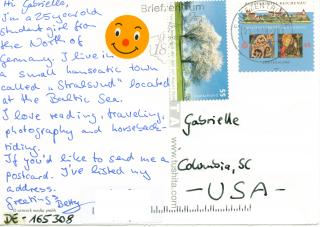 Hi Gabrielle,
I'm a 25 year old
student girl from
the North of
Germany. I live in
a small hanseatic town
called „Stralsund" located
at the Baltic Sea.
I love reading, traveling,
photography and horseback-
riding.
If you'd like to send me a
postcard. I've listed my
address.
Greetings
Betty
DE-165308
Briefzentrum
18
55
Gabrielle
Columbia, SC
- USA -